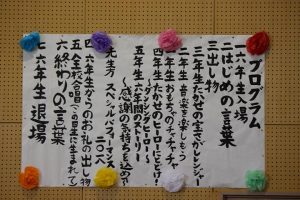 プログラム
一 六年生入場
二 はじめの言葉
三 出し物
三年生 たかせの宝さがレンジャー
二年生 音楽を楽しもう
一年生 おちゃのチャチャチャ
四年生 たかせのヒーローにとどけ!
～ダンシングヒーロー～
五年生 六年間のストーリー
～感謝の気持ちを込めて～
先生方 スペシャルパフォーマンス
四 六年生からのお礼の出し物
五 全校合唱「この星に生まれて」
六 終わりの言葉
七 六年生退場